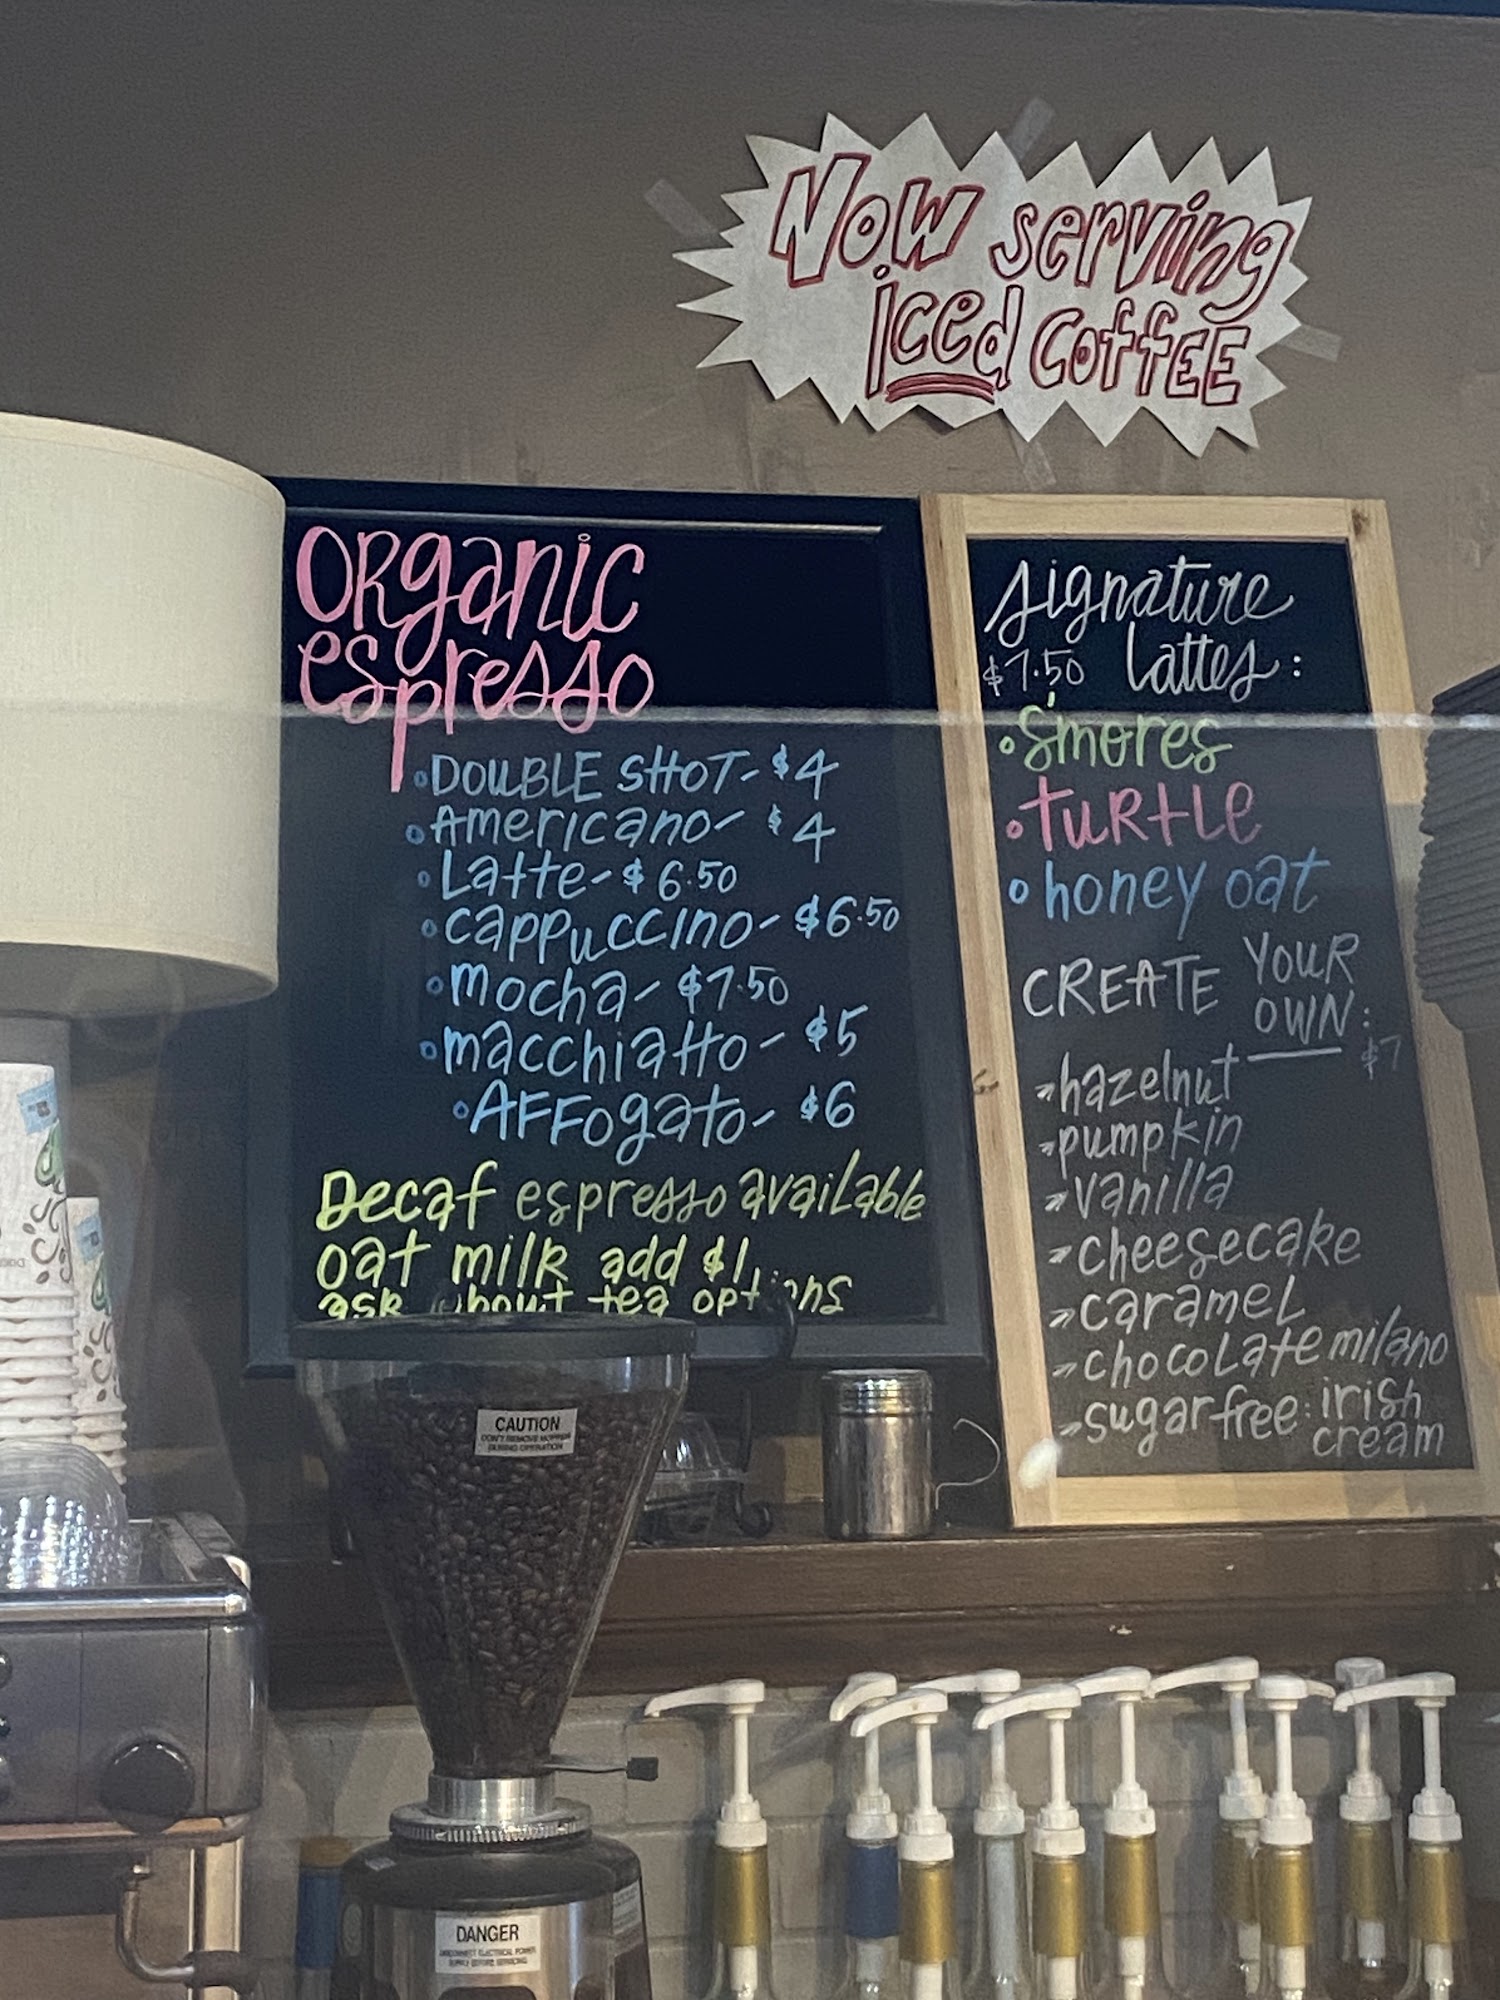 Now serving
iced coffEE
ORganic
espresso
•DOUBLE SHOT-$4
•Americano-$4
•Latte-$6.50
•cappuccino-$6.50
•mocha-$7.50
•macchiatto-$5
•AFFogato-$6
Decaf espresso available
oat milk add $1
ask about tea options
signature
$7.50 Lattes:
•S'mores
•TURtLe
•honey oat
CREATE YOUR
OWN:
$7
hazelnut
pumpkin
vanilla
cheesecake
carameL
chocoLate milano
sugar free: irish
cream
CAUTION
DON'T REMOVE HOPPER
DURING OPERATION
DANGER
DISCONNECT ELECTRICAL POWER
SUPPLY BEFORE SERVICING